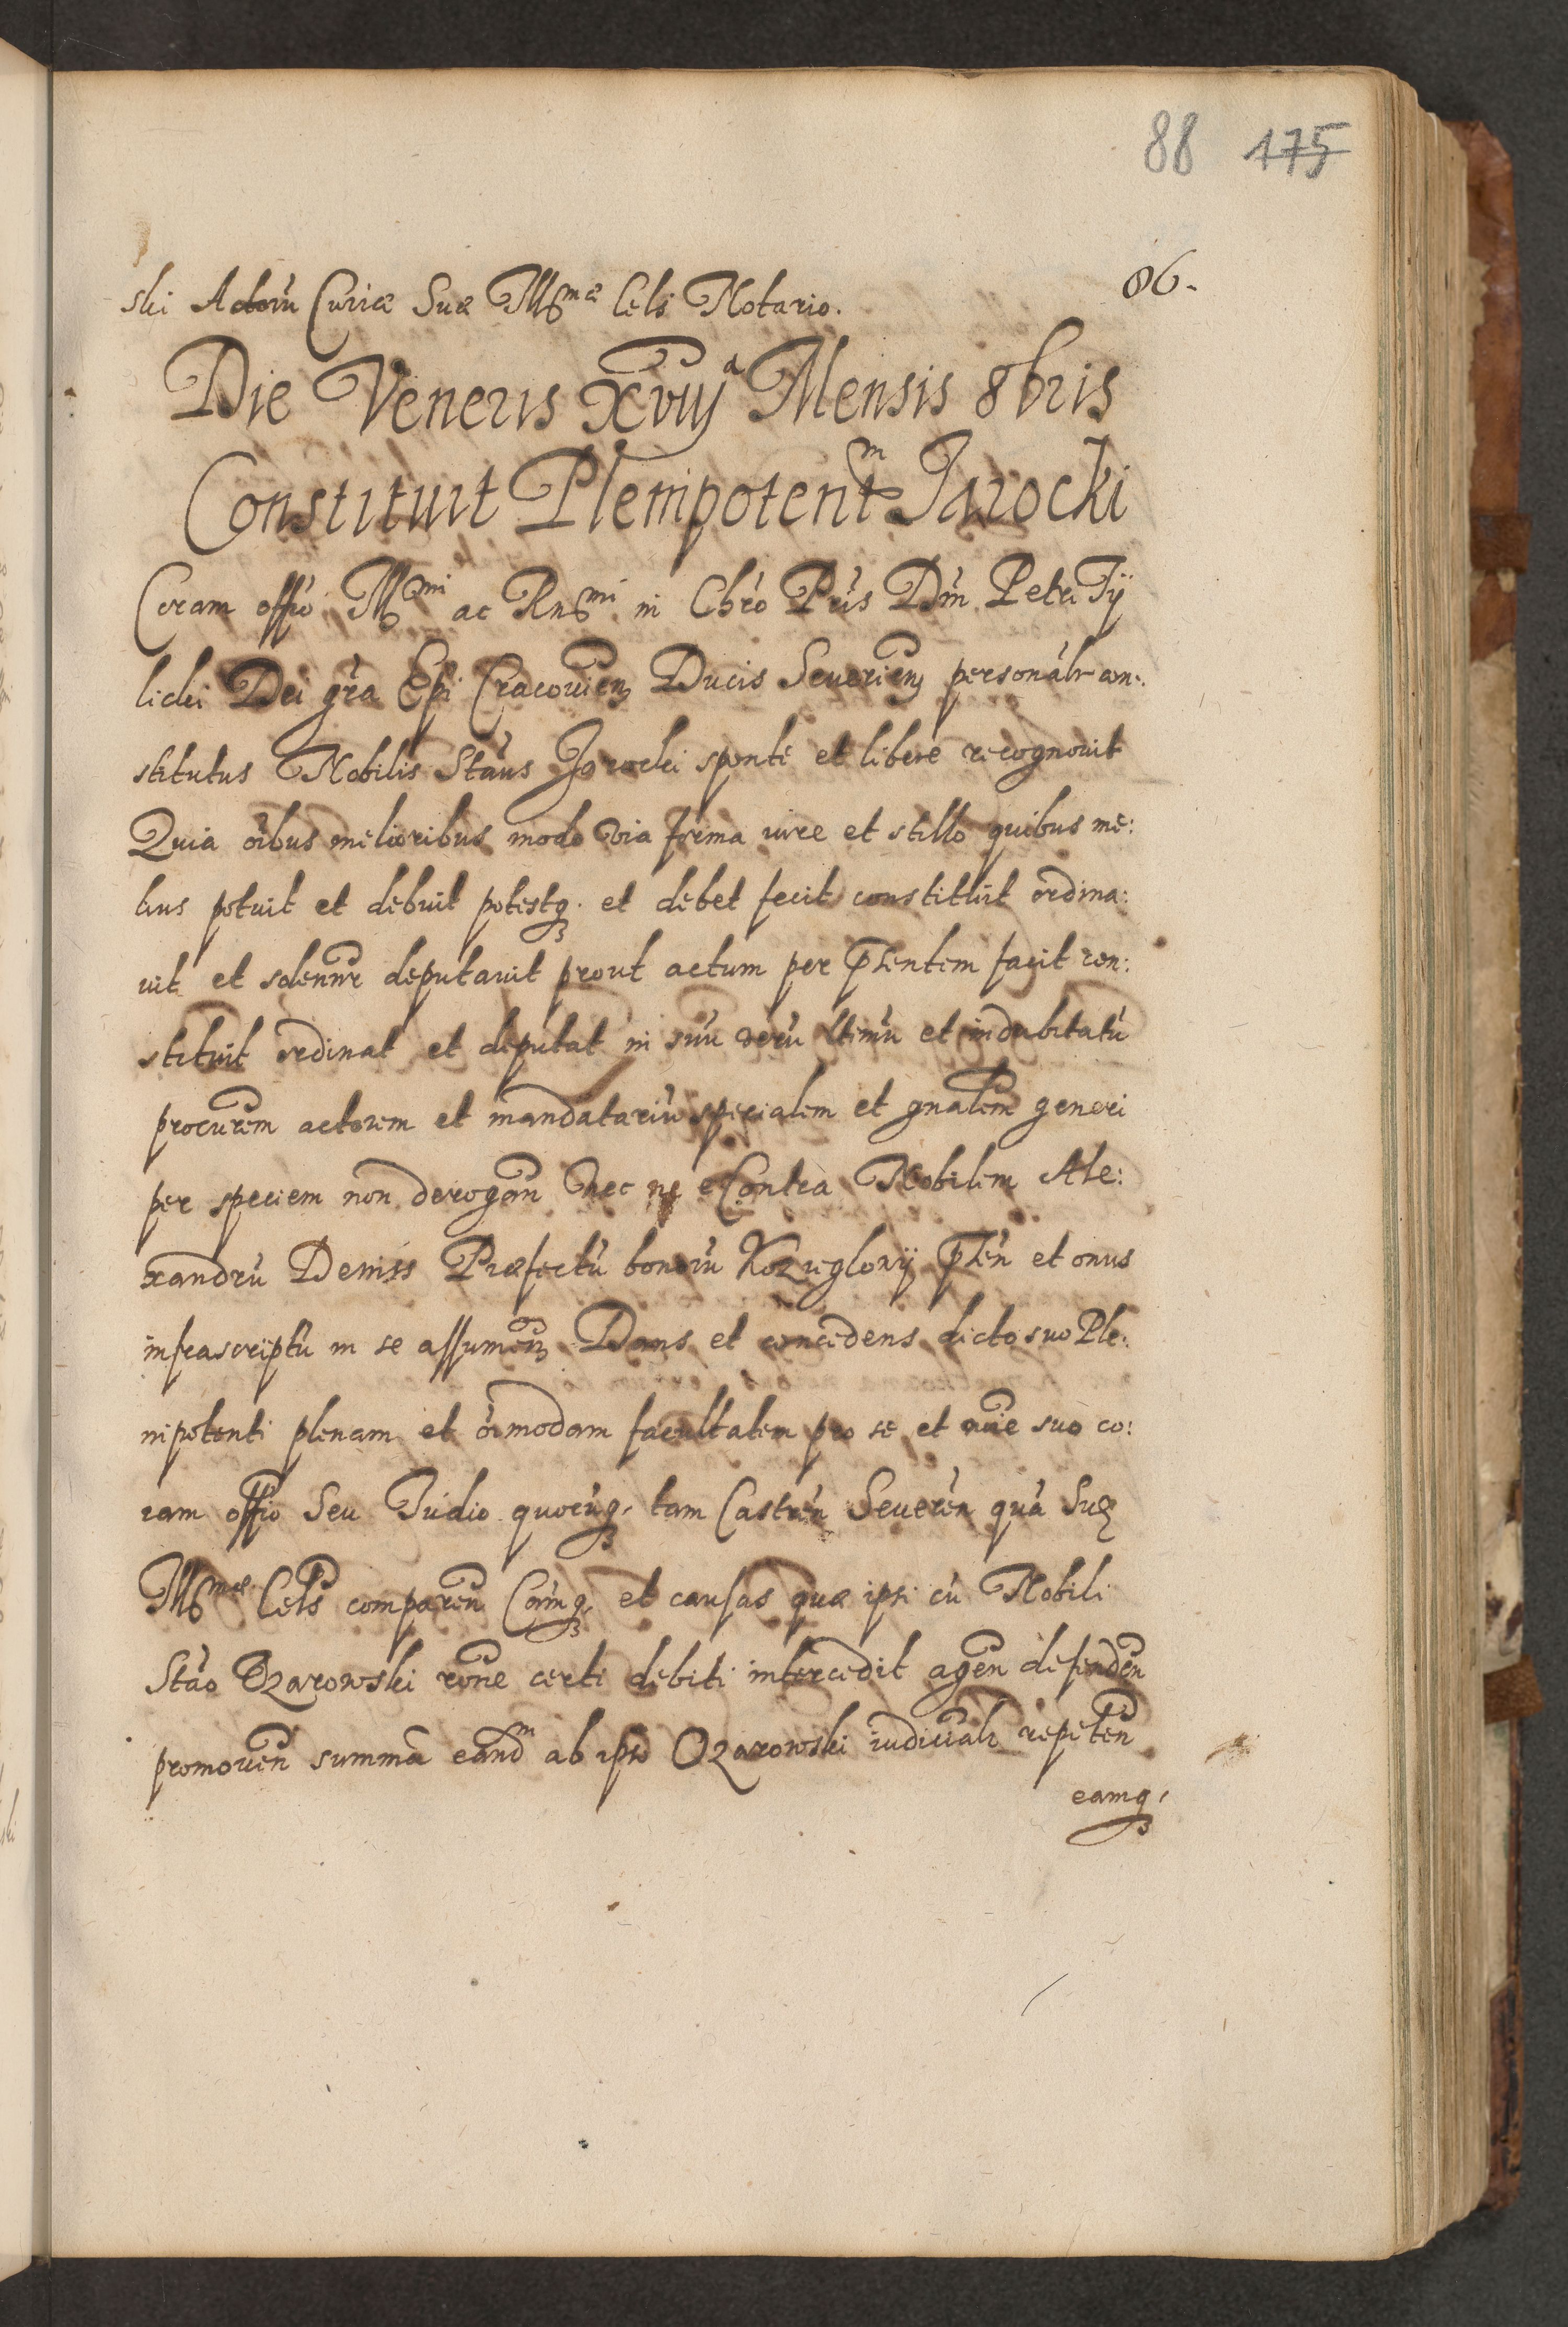 88 175
86.
ski Actorū Curiæ Suæ Illsmæ Cels Notario.
Die Veneris Xviijª Mensis 8bris
Constituit Plenipotentm Jarocki
Coram offio Illsmi ac Rndsmi in Chro Pris Dni Petri Tÿ
licki Dei gra Epi Cracouien Ducis Seuerien personalr con:
stitutus Nobilis Staus Jarocki sponte et libere recognouit
Quia oibus melioribus modo via forma iure et stillo quibus me:
lius potuit et debuit potestq. et debet fecit constituit ordina:
uit et solennr deputauit prout actum per pntentem facit con:
stituit ordinat et deputat in suū verū ltimū et indubitatū
procurem actorem et mandatariū specialem et gnalem generi
per speciem non derogan nec ne e Contra Nobilem Ale:
xandrū Deniss Præfectū bonorū Kozieglowÿ pnten et onus
infrascriptū in se assumen Dans et concedens dicto suo Ple:
nipotenti plenam et oimodam facultatem pro se et noie suo co:
ram offio Seu Iudio quocūq. tam Castren Seueren quā Suæ
Illsmæ Cels comparen Coīnq. et causas quæ ipsi cū Nobili
Stao Ozarowski rone certi debiti intercedit agen defenden
promouen summā eandm ab ipso Ozarowski iudicialr repeten
eamq.